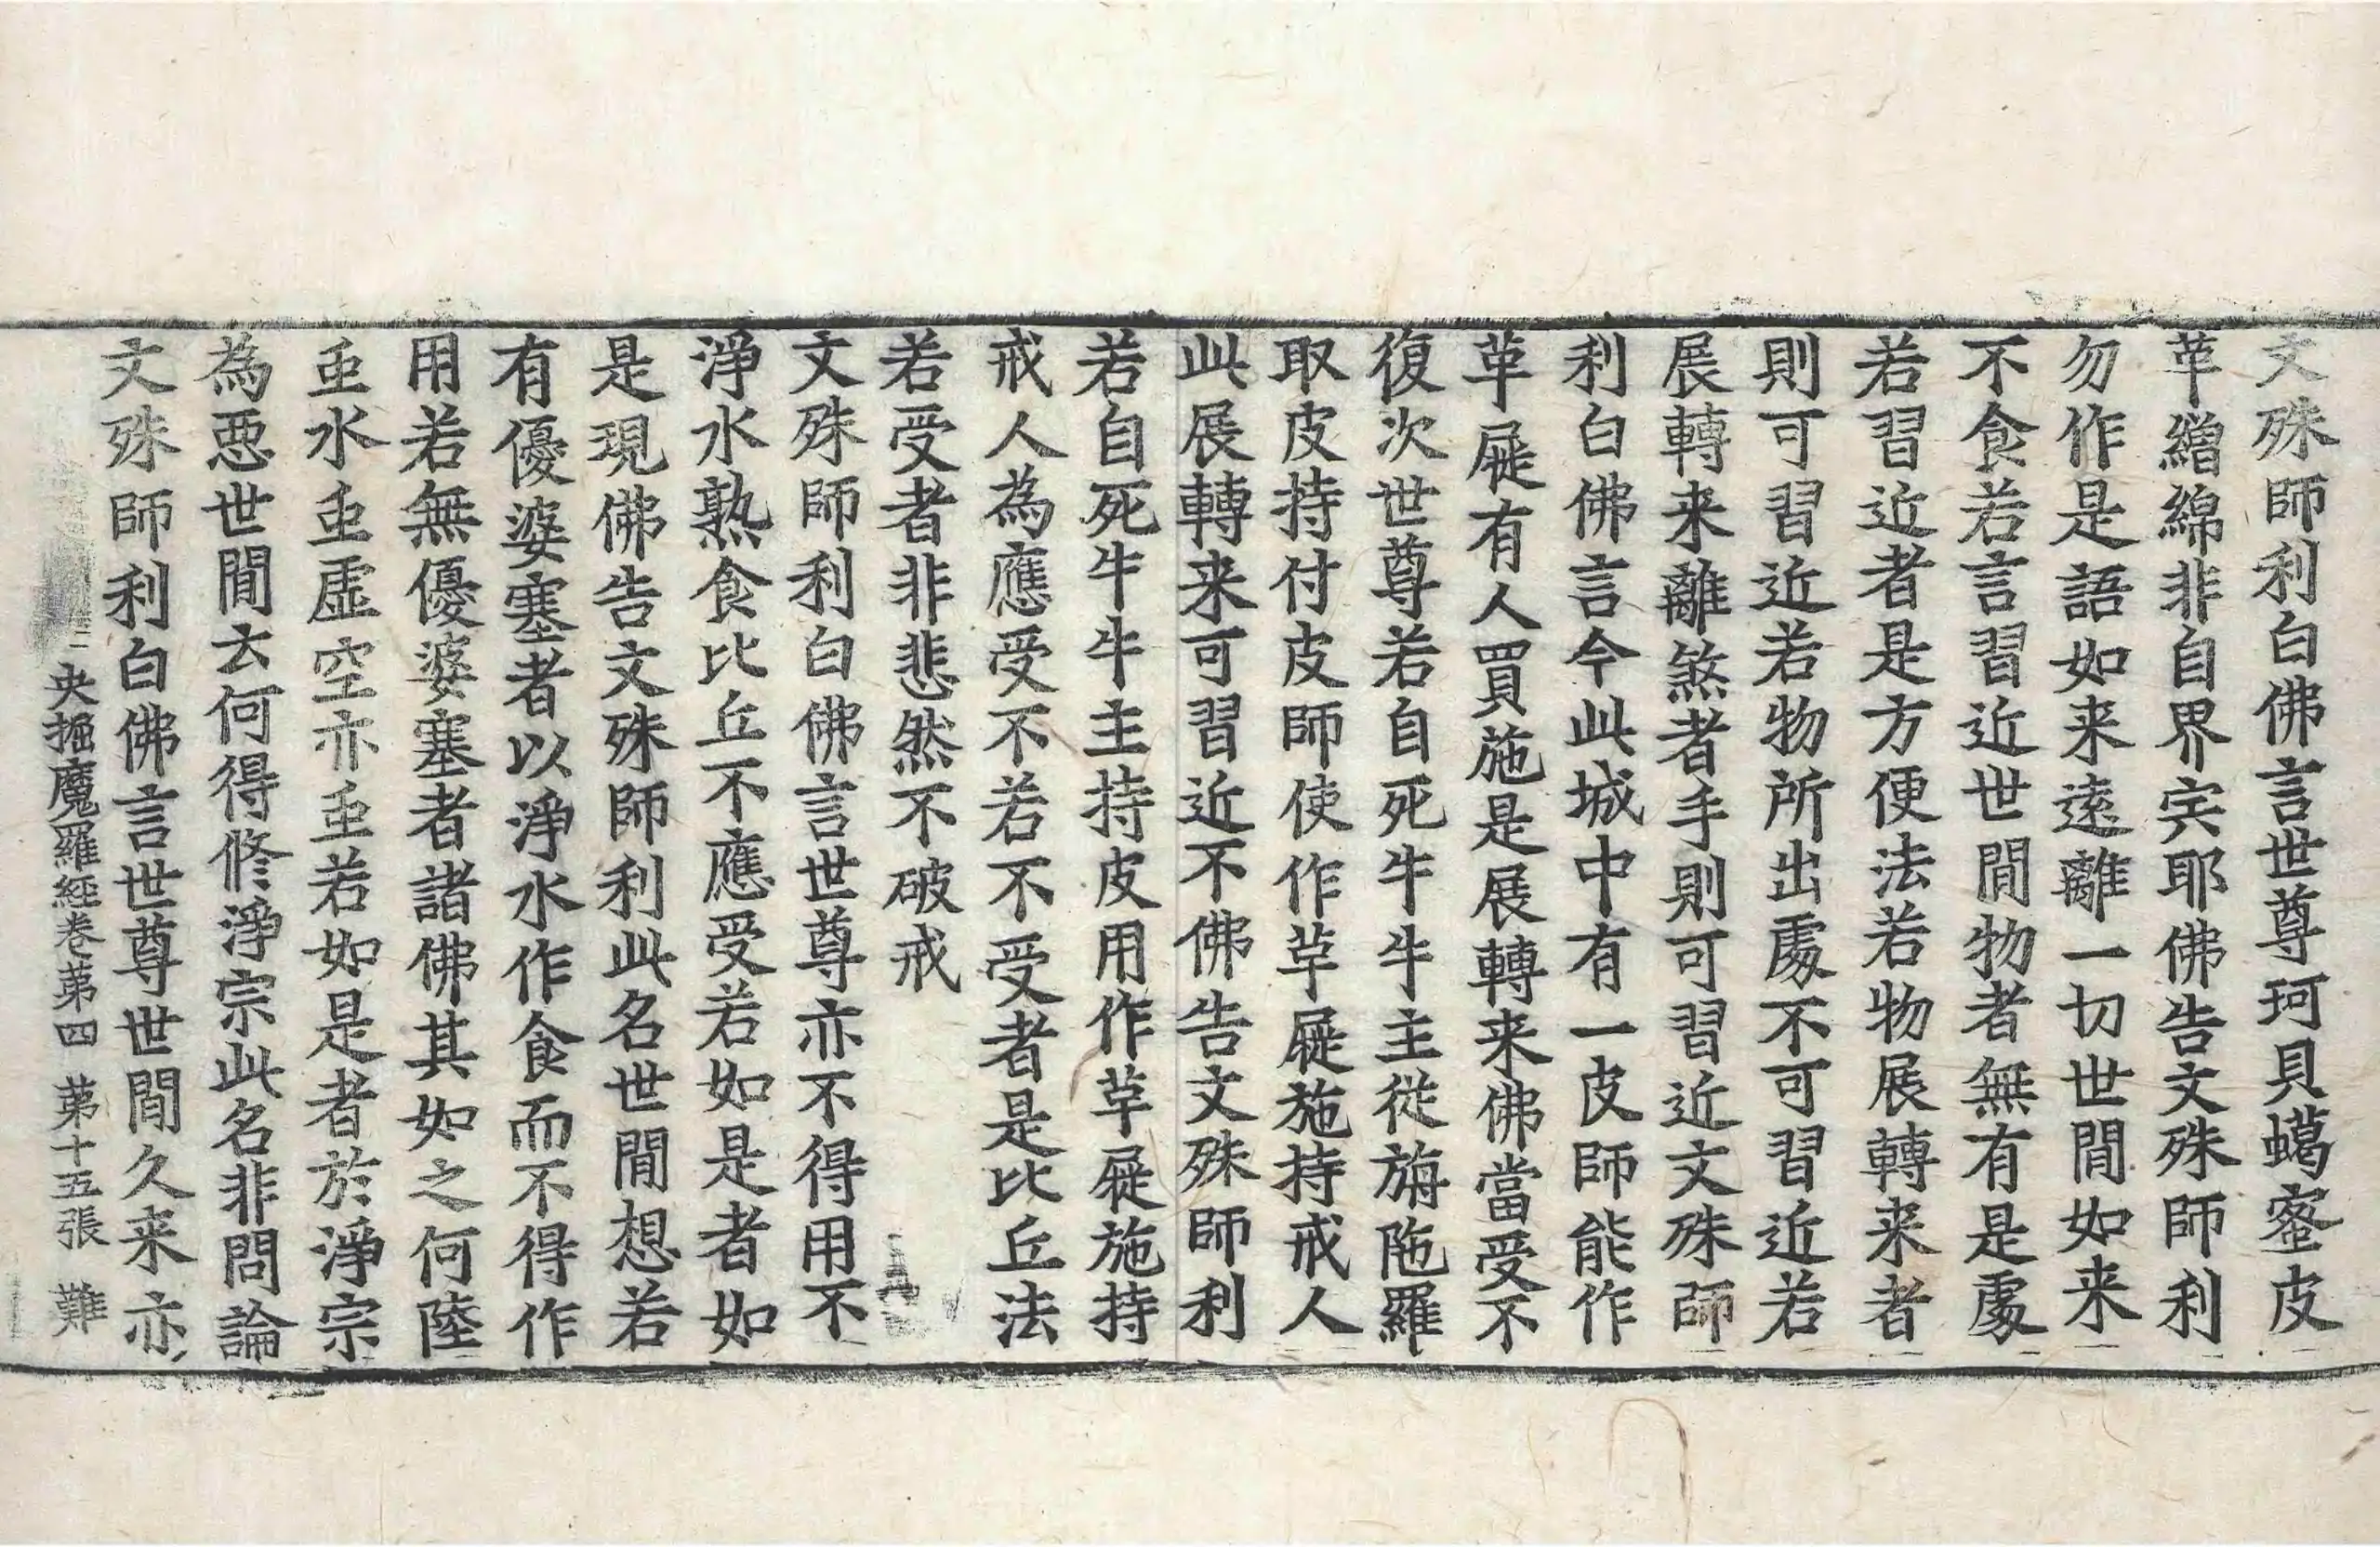 文殊師利白佛言世尊珂貝蠟蜜皮
革繒綿非自界宍耶佛告文殊師利
勿作是語如来遠離一切世間如来
不食若言習近世間物者無有是處
若習近者是方便法若物展轉来者
則可習近若物所出處不可習近若
展轉来離煞者手則可習近文殊師
利白佛言今此城中有一皮師能作
革屣有人買施是展轉来佛當受不
復次世尊若自死牛牛主從旃陁羅
取皮持付皮師使作革屣施持戒人
此展轉来可習近不佛告文殊師利
若自死牛牛主持皮用作革屣施持
戒人為應受不若不受者是比丘法
若受者非悲然不破戒
文殊師利白佛言世尊亦不得用不
淨水熟食比丘不應受若如是者如
是現佛告文殊師利此名世間想若
有優婆塞者以淨水作食而不得作
用若無優婆塞者諸佛其如之何陸
䖝水䖝虛空亦䖝若如是者於淨宗
為惡世間云何得修淨宗此名非問論
文殊師利白佛言世尊世間久来亦
央掘魔羅經卷第四 第十五張 難